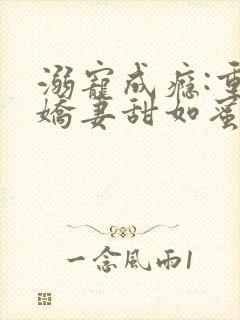 溺寵成癮:重
嬌妻甜如蜜
一念風雨1